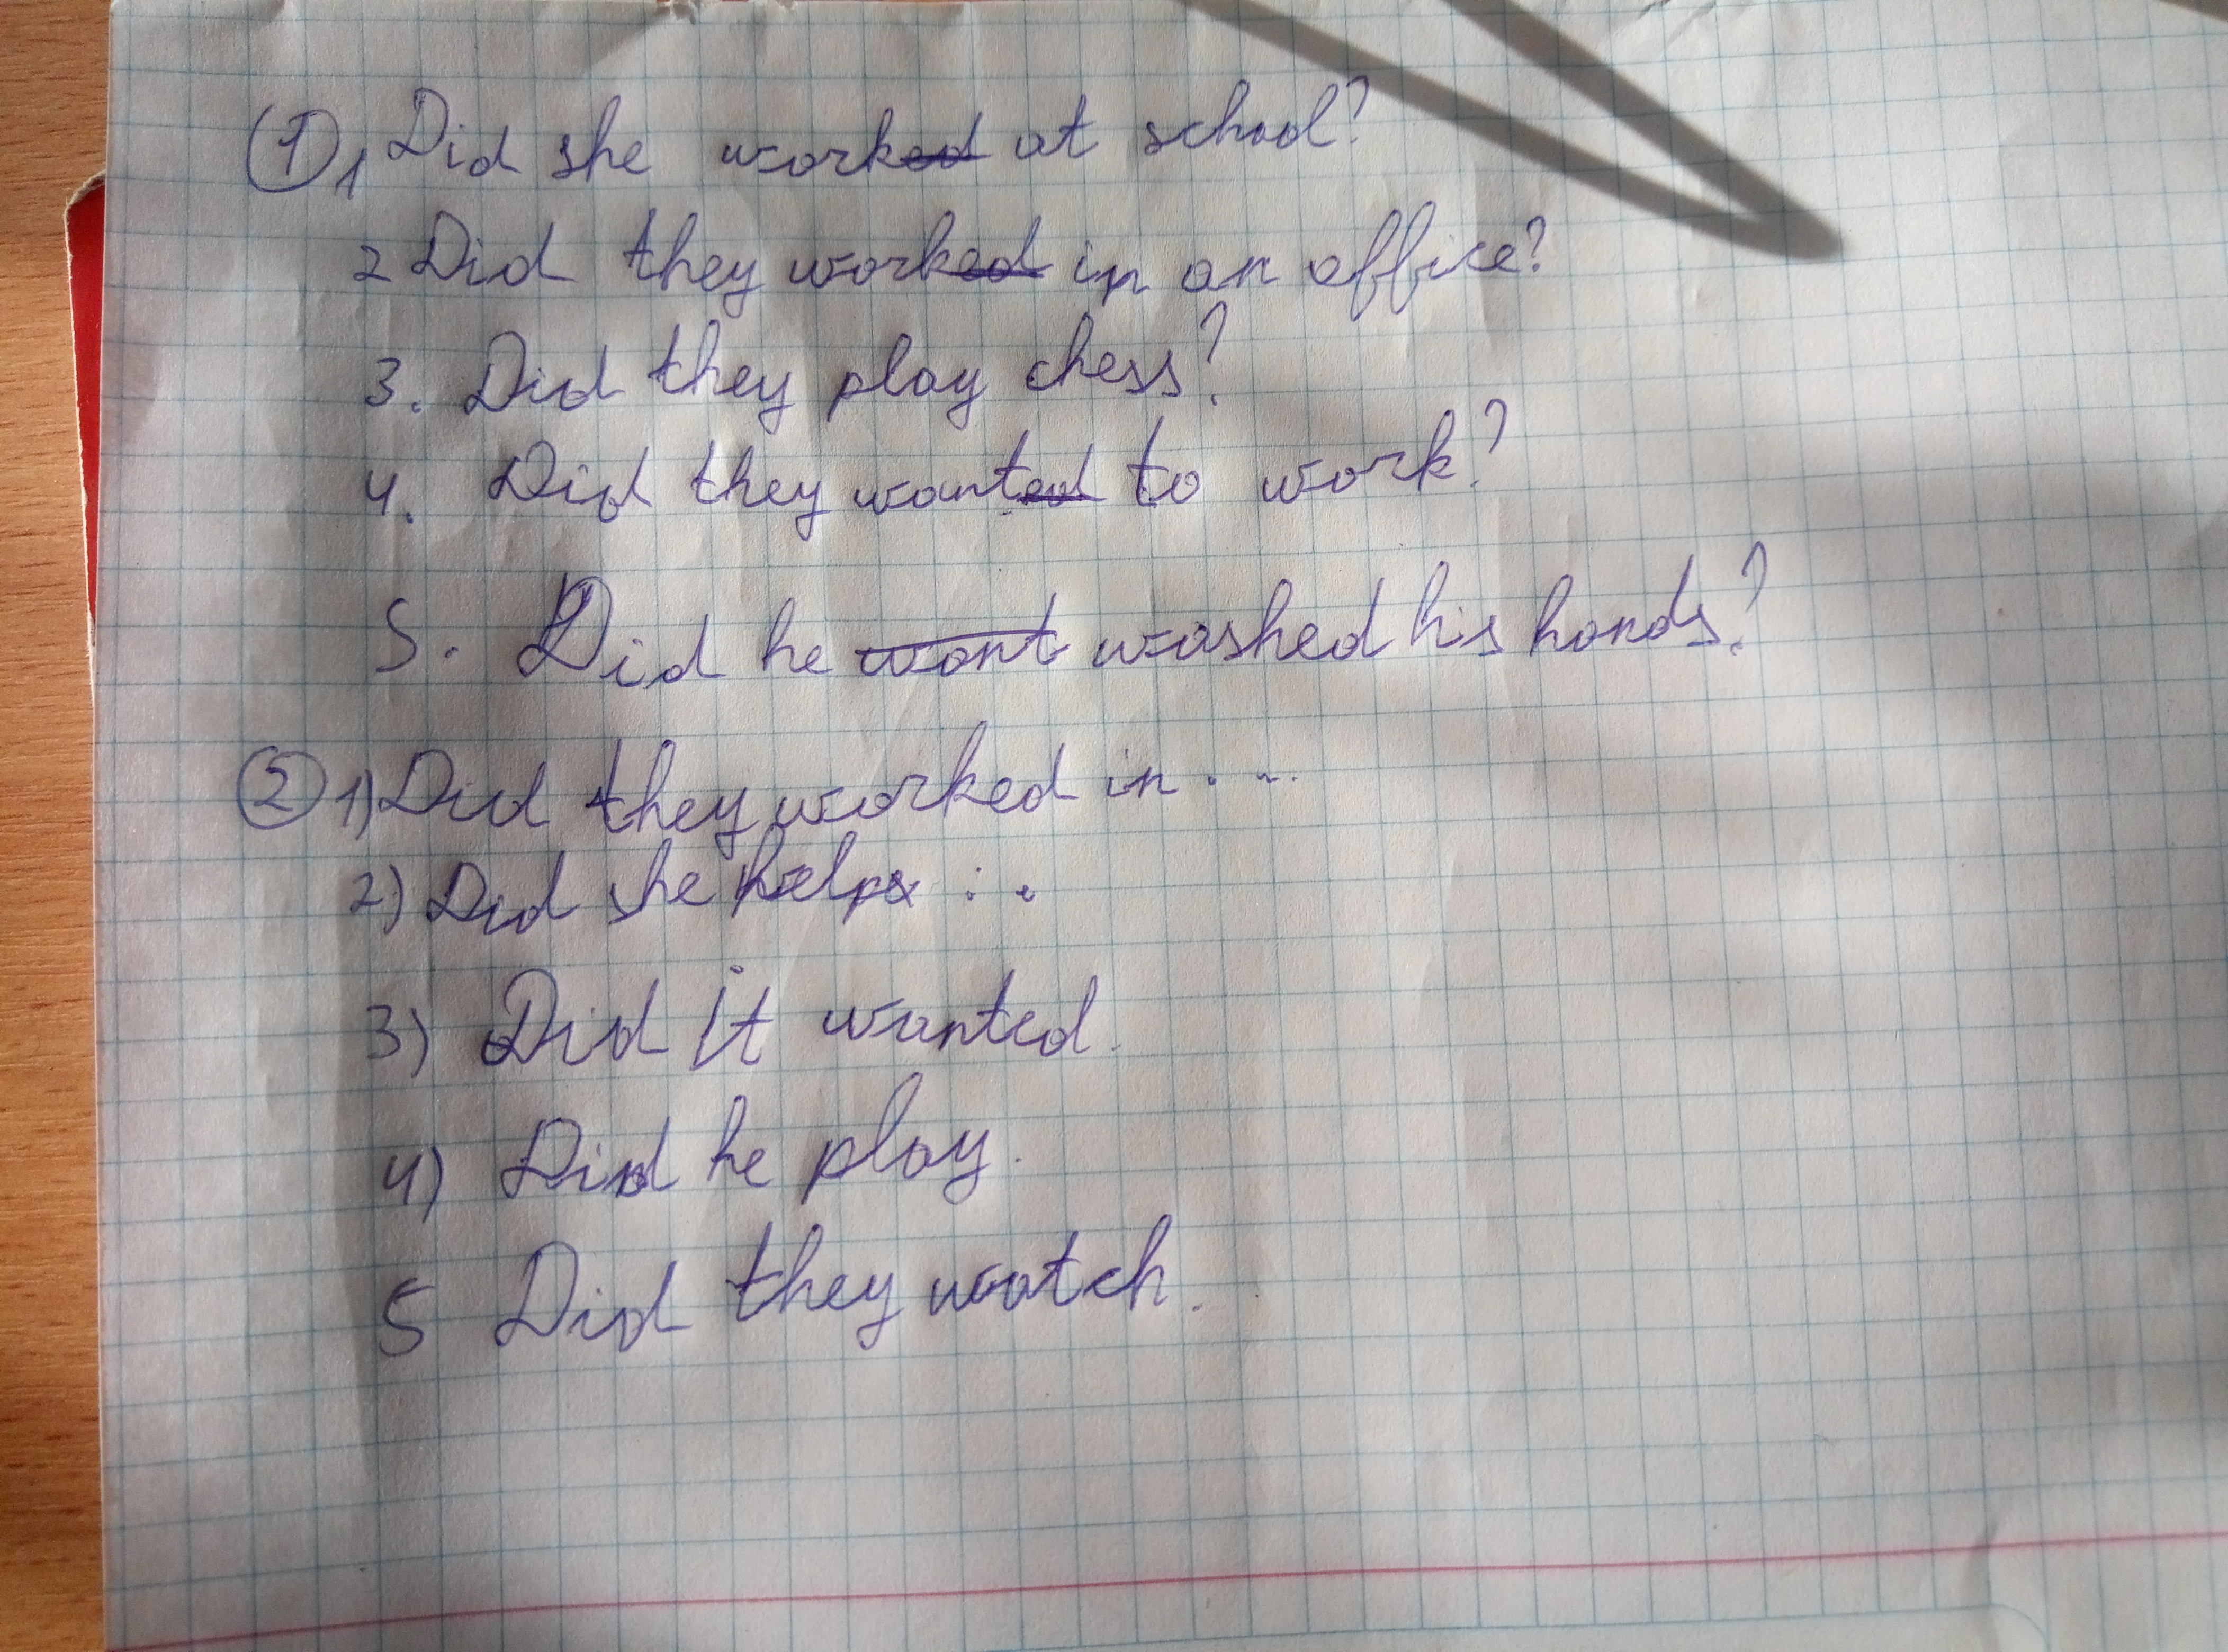 ① 1 Did she work at school?
2 Did they work in an office?
3. Did they play chess?
4. Did they want to work?
5. Did he washed his hands?
② 1) Did they worked in . . .
2) Did she help : .
3) Did it wanted.
4) Did he play.
5 Did they watch.